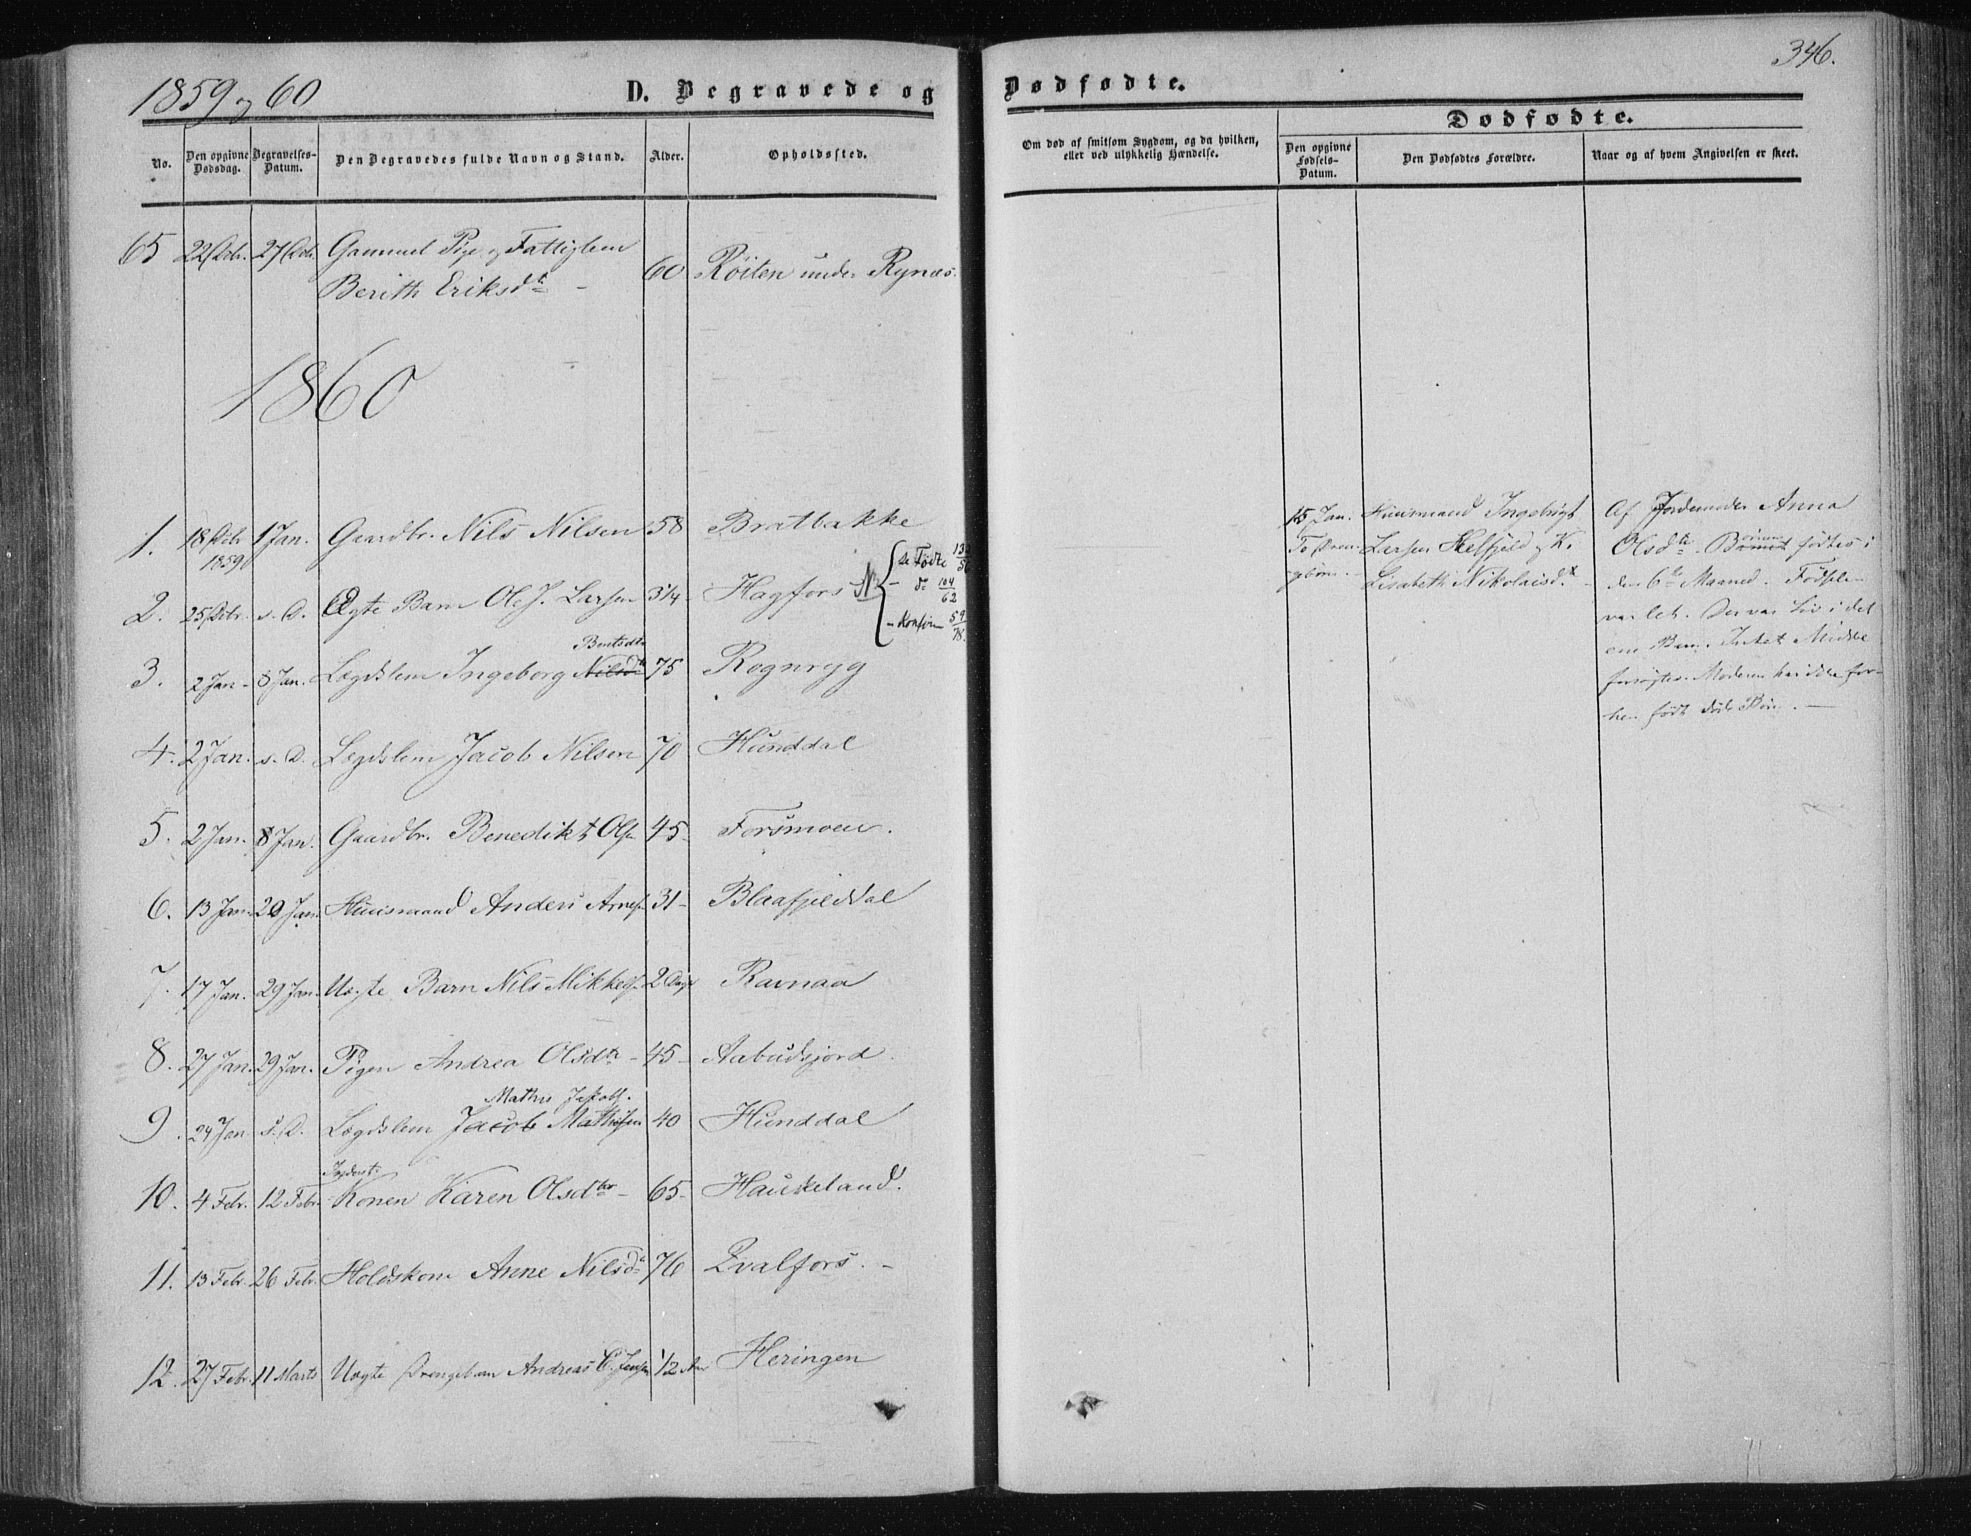 346.
1859 og 60
D. Begravede og Dødfødte.
Dødfødte.
No.
Den opgivne Dødsdag.
Begravelses-Datum.
Den Begravedes fulde Navn og Stand.
Alder.
Opholdssted.
Om død af smitsom Sygdom, og da hvilken, eller ved ulykkelig Hændelse.
Den opgivne Fødsels-Datum.
Den Dødfødtes Forældre.
Naar og af hvem Angivelsen er skeet.
65 22 Dcbr. 27 Dcbr. Gammel Pige og Fattiglem
Berith Eriksdtr - 60 Røiten under Rynæs.
1860
1. 18 Dcbr 1859 1 Jan. Gaardbr. Nils Nilsen 58 Bratbakke
2. 25 Dcbr. s. D. Ægte Barn Ole J. Larsen 3/4 Hagfors NB
se Fødte
do 104/62
- Konfirm 59/78.
3. 2 Jan - 8 Jan. Lægdslem Ingeborg Nilsdtr 75 Rognryg
Bentsdtr
4. 2 Jan. s. D. Lægdslem Jacob Nilsen 70 Hunddal
5. 2 Jan. 8 Jan. Gaardbr. Benedikt Ols. 45- Forsmoen.
6. 13 Jan. 20 Jan. Huusmand Anders Arnes. 31- Blaafjelddal
7. 17 Jan. 29 Jan. Uægte Barn Nils Mikkels. 2 Dage Ravnaa
8. 27 Jan. 29 Jan. Pigen Andrea Olsdtr - 45- Aabudsjord.
Mathis Jakobs.
9. 24 Jan s. D. Lægdslem Jacob Mathisen 40 Hunddal
Inderst.
10. 4 Febr. 12 Febr. Konen Karen Olsdtr - 65- Haukeland.
11. 13 Febr. 26 Febr. Holdskone Anne Nilsdtr 76 Evalfors. -
12. 27 Febr. 11 Marts Uægte Drengebarn Andreas C. Jensen 1/2 Aar Heringen
15 Jan.
To Dren
gebørn. -
Huusmand Ingebrigt
Larsen Helfjeld og K.
Lisabeth Nikolaisdtr
Af Jordemoder Anna
Olsdtr. Børnene fødtes i
den 6te Maaned. Fødsle-
var let. Der var Liv i det
ene Barn. Intet Middel
forsøgtes. Moderen har ikke for-
hen født døde Børn. -